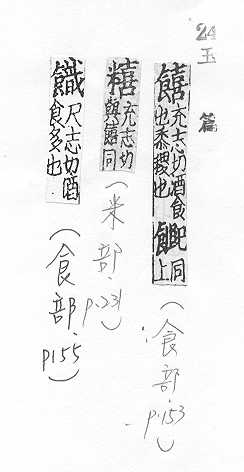 24
玉篇
饎充志切酒食也黍稷也同上(食部.p.153)
糦充志切與饎同(米部.p.231)
尺志切酒食多也(食部.p155)